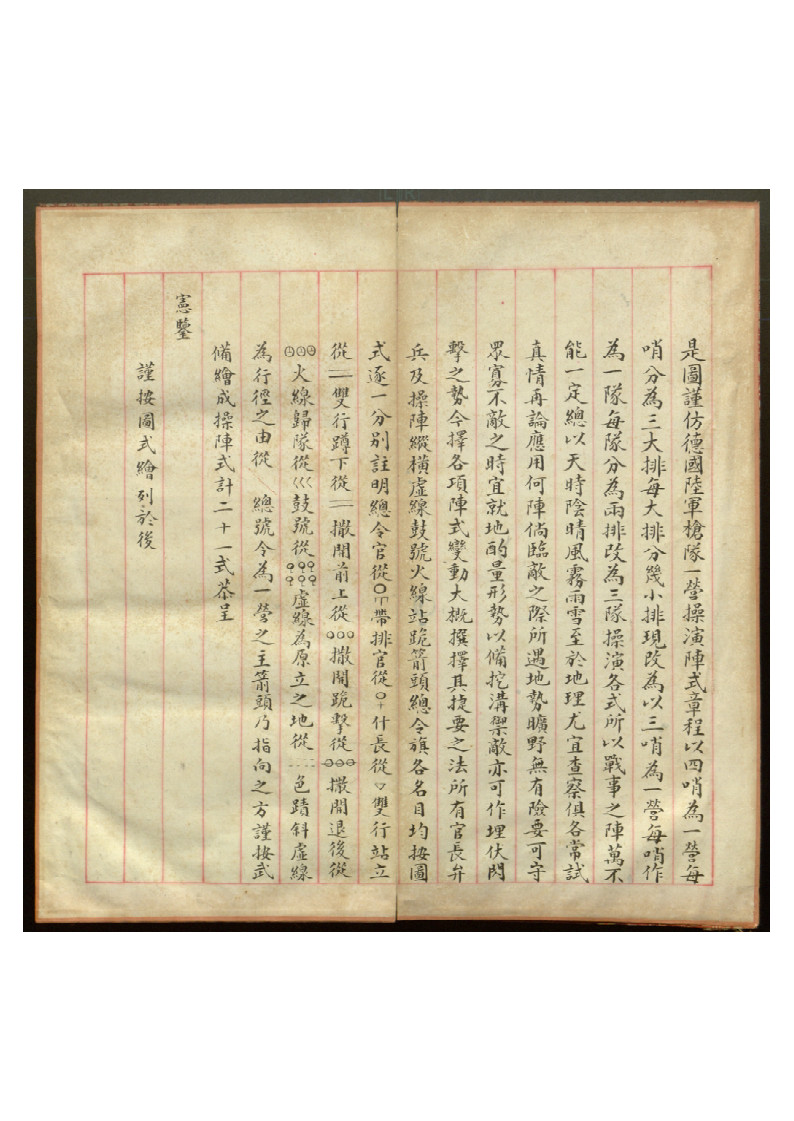 是圖謹仿德國陸軍槍隊一營操演陣式章程以四哨為一營每
哨分為三大排每大排分幾小排現改為以三哨為一營每哨作
為一隊每隊分為兩排改為三隊操演各式所以戰事之陣萬不
能一定總以天時陰晴風霧雨雪至於地理尤宜查察俱各當試
真情再論應用何陣倘臨敵之際所遇地勢曠野無有險要可守
眾寡不敵之時宜就地酌量形勢以備挖溝禦敵亦可作埋伏閃
擊之勢今擇各項陣式變動大概撰擇其捷要之法所有官長弁
兵及操陣縱橫虛線鼓號火線站跪箭頭總令旗各名目均按圖
式逐一分別註明總令官從〇帶排官從〇什長從▽雙行站立
從二雙行蹲下從二撒開前上從○○○撒開跪擊從⦵⦵⦵撒開退後從
火線歸隊從〈〈〈鼓號從♀♀♀虛線為原立之地從----色踏斜虛線
為行徑之由從總號令為一營之主箭頭乃指向之方謹按式
備繪成操陣式計二十一式恭呈
憲鑒
謹按圖式繪列於後